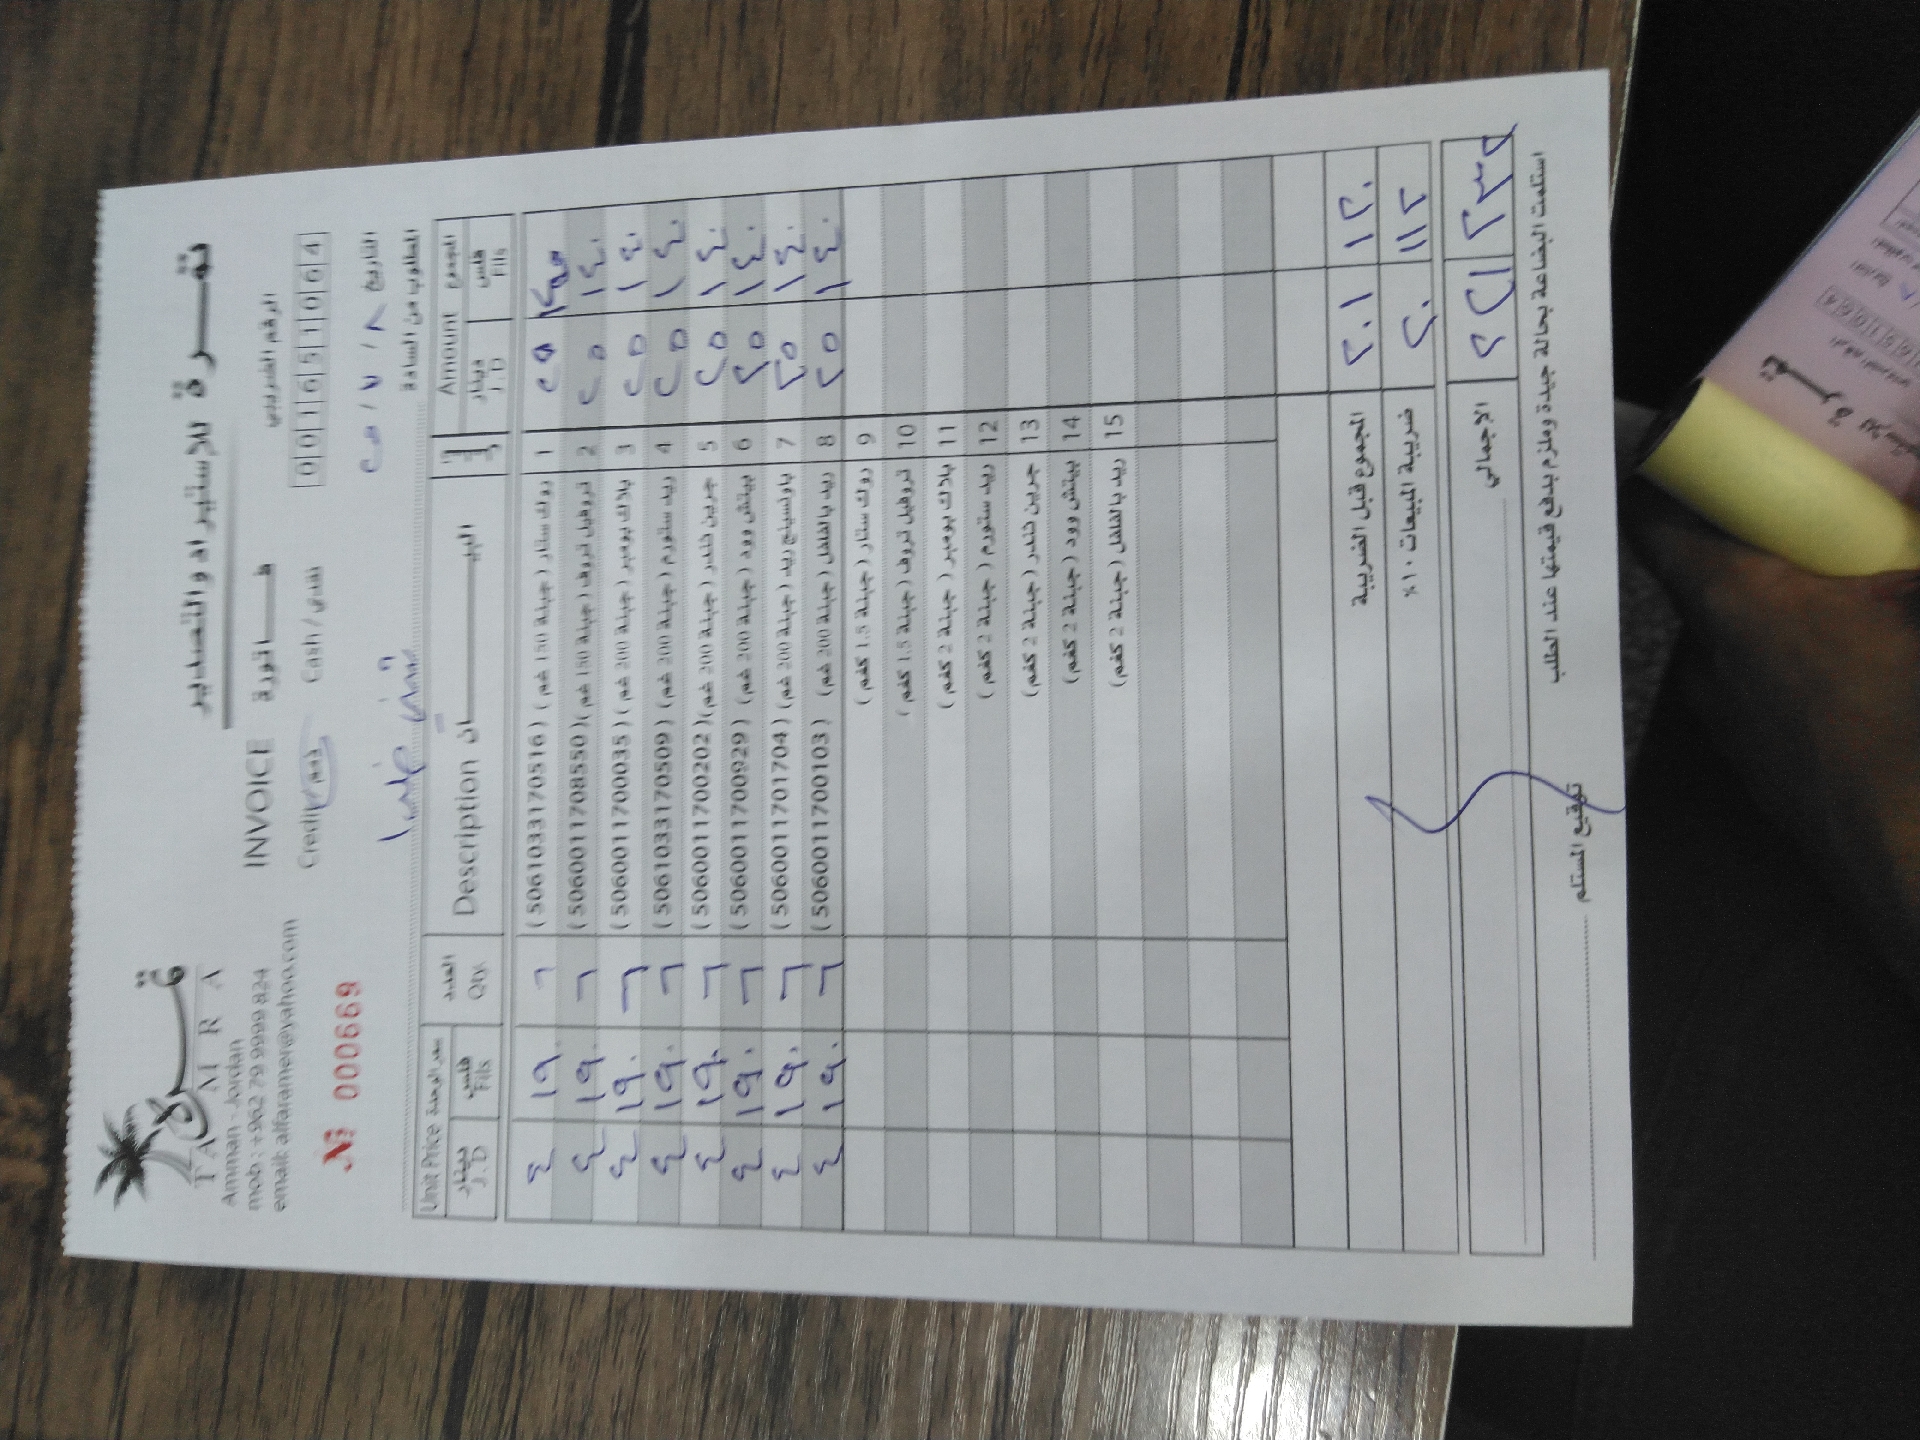 تمرة
TAMRA
Amman - Jordan
mob : +962 79 9999 824
email: alfaramer@yahoo.com
تمرة للاستيراد والتصدير
INVOICE فاتورة
الرقم الضريبي
001651064
Credit / ذمم Cash / نقدي
№ 000669
التاريخ ٨ / ٧ /
المطلوب من السادة
Unit Price سعر الوحدة
دينار J.D
فلس Fils
العدد Qty.
Description البيـــان
الرقم
Amount المجموع
دينار J.D
فلس Fils
٤ ١٩٠ ٦ (5061033170516) روك ستار (جبنة 150 غم) 1 ٢٥
٤ ١٩٠ ٦ (5060011708550) تروفيل تروف (جبنة 150 غم) 2 ٢٥ ١٤٠
٤ ١٩٠ ٦ (5060011700035) بلاك بومبر (جبنة 200 غم) 3 ٢٥ ١٤٠
٤ ١٩٠ ٦ (5061033170509) ريد ستورم (جبنة 200 غم) 4 ٢٥ ١٤٠
٤ ١٩٠ ٦ (5060011700202) جرين ثندر (جبنة 200 غم) 5 ٢٥ ١٤٠
٤ ١٩٠ ٦ (5060011700929) بيتش وود (جبنة 200 غم) 6 ٢٥ ١٤٠
٤ ١٩٠ ٦ (5060011701704) باونسينج ريد (جبنة 200 غم) 7 ٢٥ ١٤٠
٤ ١٩٠ ٦ (5060011700103) ريد بالفلفل (جبنة 200 غم) 8 ٢٥ ١٤٠
روك ستار (جبنة 1.5 كغم) 9
تروفيل تروف (جبنة 1.5 كغم) 10
بلاك بومبر (جبنة 2 كغم) 11
ريد ستورم (جبنة 2 كغم) 12
جرين ثندر (جبنة 2 كغم) 13
بيتش وود (جبنة 2 كغم) 14
ريد بالفلفل (جبنة 2 كغم) 15
المجموع قبل الضريبة ٢٠١ ١٢٠
ضريبة المبيعات ١٠٪ ٢٠ ١١٢
الاجمالي ٢٢١ ٢٣٢
استلمت البضاعة بحالة جيدة وملزم بدفع قيمتها عند الطلب
توقيع المستلم